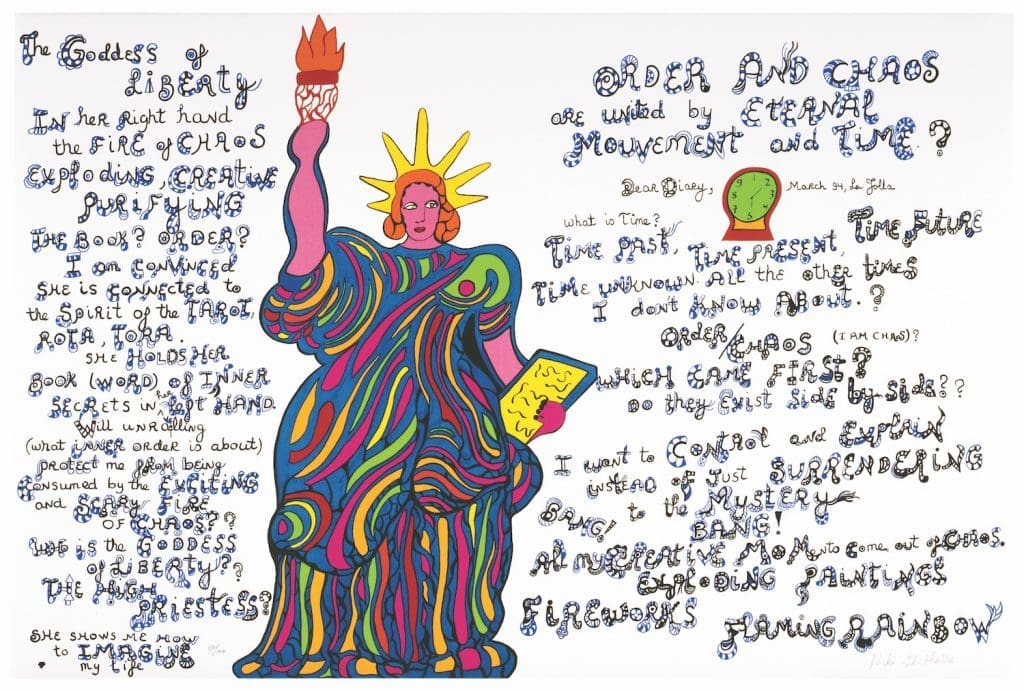 The GODDESS of
LIBERTY
IN her Right hand
the FIRE of CHAOS
EXPLODING, CREATIVE
PURIFYING
THE BOOK? ORDER?
I am CONVINCED
SHE IS CONNECTED to
the Spirit of the TAROT,
ROTA, TORA.
SHE HOLDS HER
BOOK (WORD) of INNER
SECRETS IN her left HAND.
Will unravelling
(what INNER order is about)
protect me from being
Consumed by the EXCITING
and SCARY FIRE
OF CHAOS??
WHO is the GODDESS
of LIBERTY??
THE HIGH
PRIESTESS?
SHE SHOWS ME HOW
to IMAGINE
my life
ORDER AND CHAOS
are united by ETERNAL
MOUVEMENT and TIME?
Dear Diary,
March 94, La Jolla
9 1 2 3 5 7 8
what is Time?
TIME PAST, TIME PRESENT, TIME FUTURE
TIME UNKNOWN. ALL the other times
I don't KNOW ABOUT.?
ORDER/CHAOS (I AM CHAOS)?
WHICH CAME FIRST?
Do they Exist Side by Side??
I want to CONTROL and EXPLAIN
instead of Just SURRENDERING
BANG! to the MYSTERY
BANG!
All my CREATIVE MOMents come out of CHAOS.
EXPLODING PAINTINGS
FIREWORKS FLAMING RAINBOW